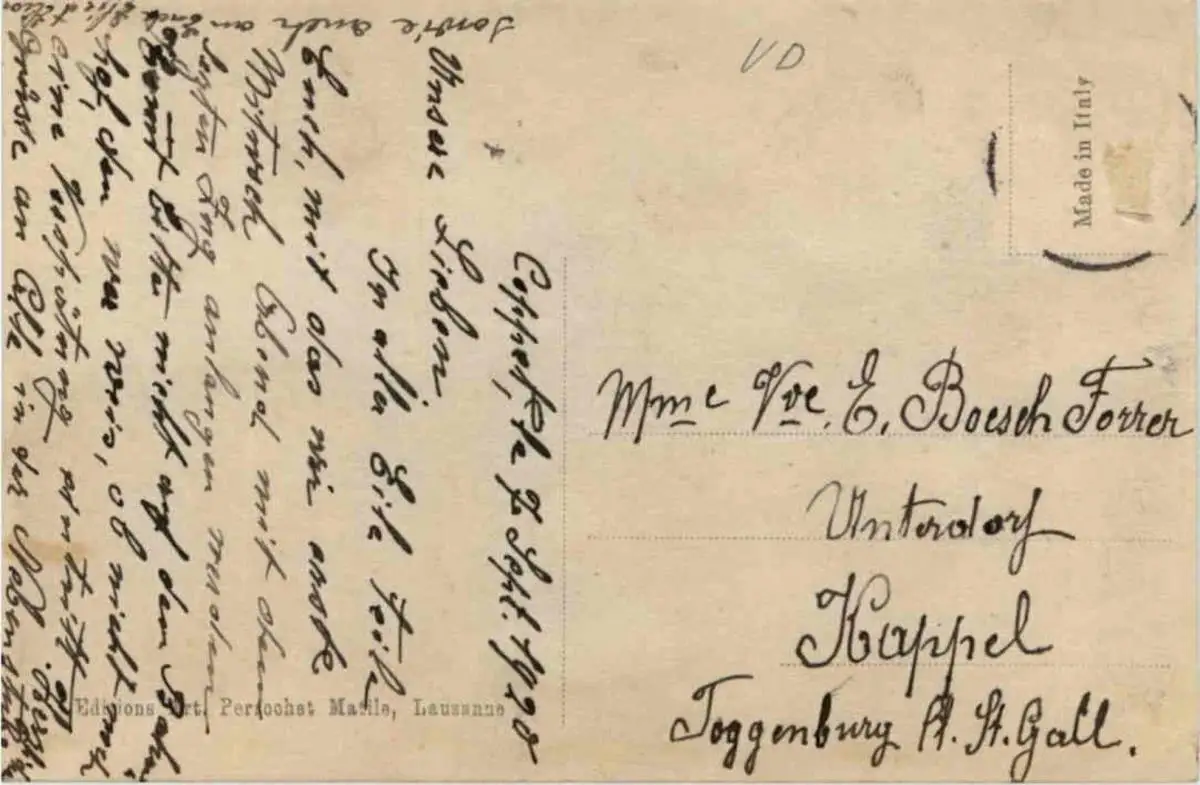 Coppet, 7 Sept. 1920
Unsere Lieben
In aller Eile teile
Euch, mit das wir erste
Mitwoch Abend mit dem
letzten Zug anlangen werden
bitte nicht auf den Bahn,
hof, den wer weis, ob nicht noch
eine Verspätung
Grüsse an Alle in der
sowie auch an Euch
VD
Made in Italy
Mme Vve. E. Boesch Forrer
Unterdorf
Kappel
Toggenburg Kt. St. Gall.
Editions Art. Perrochet Matile, Lausanne